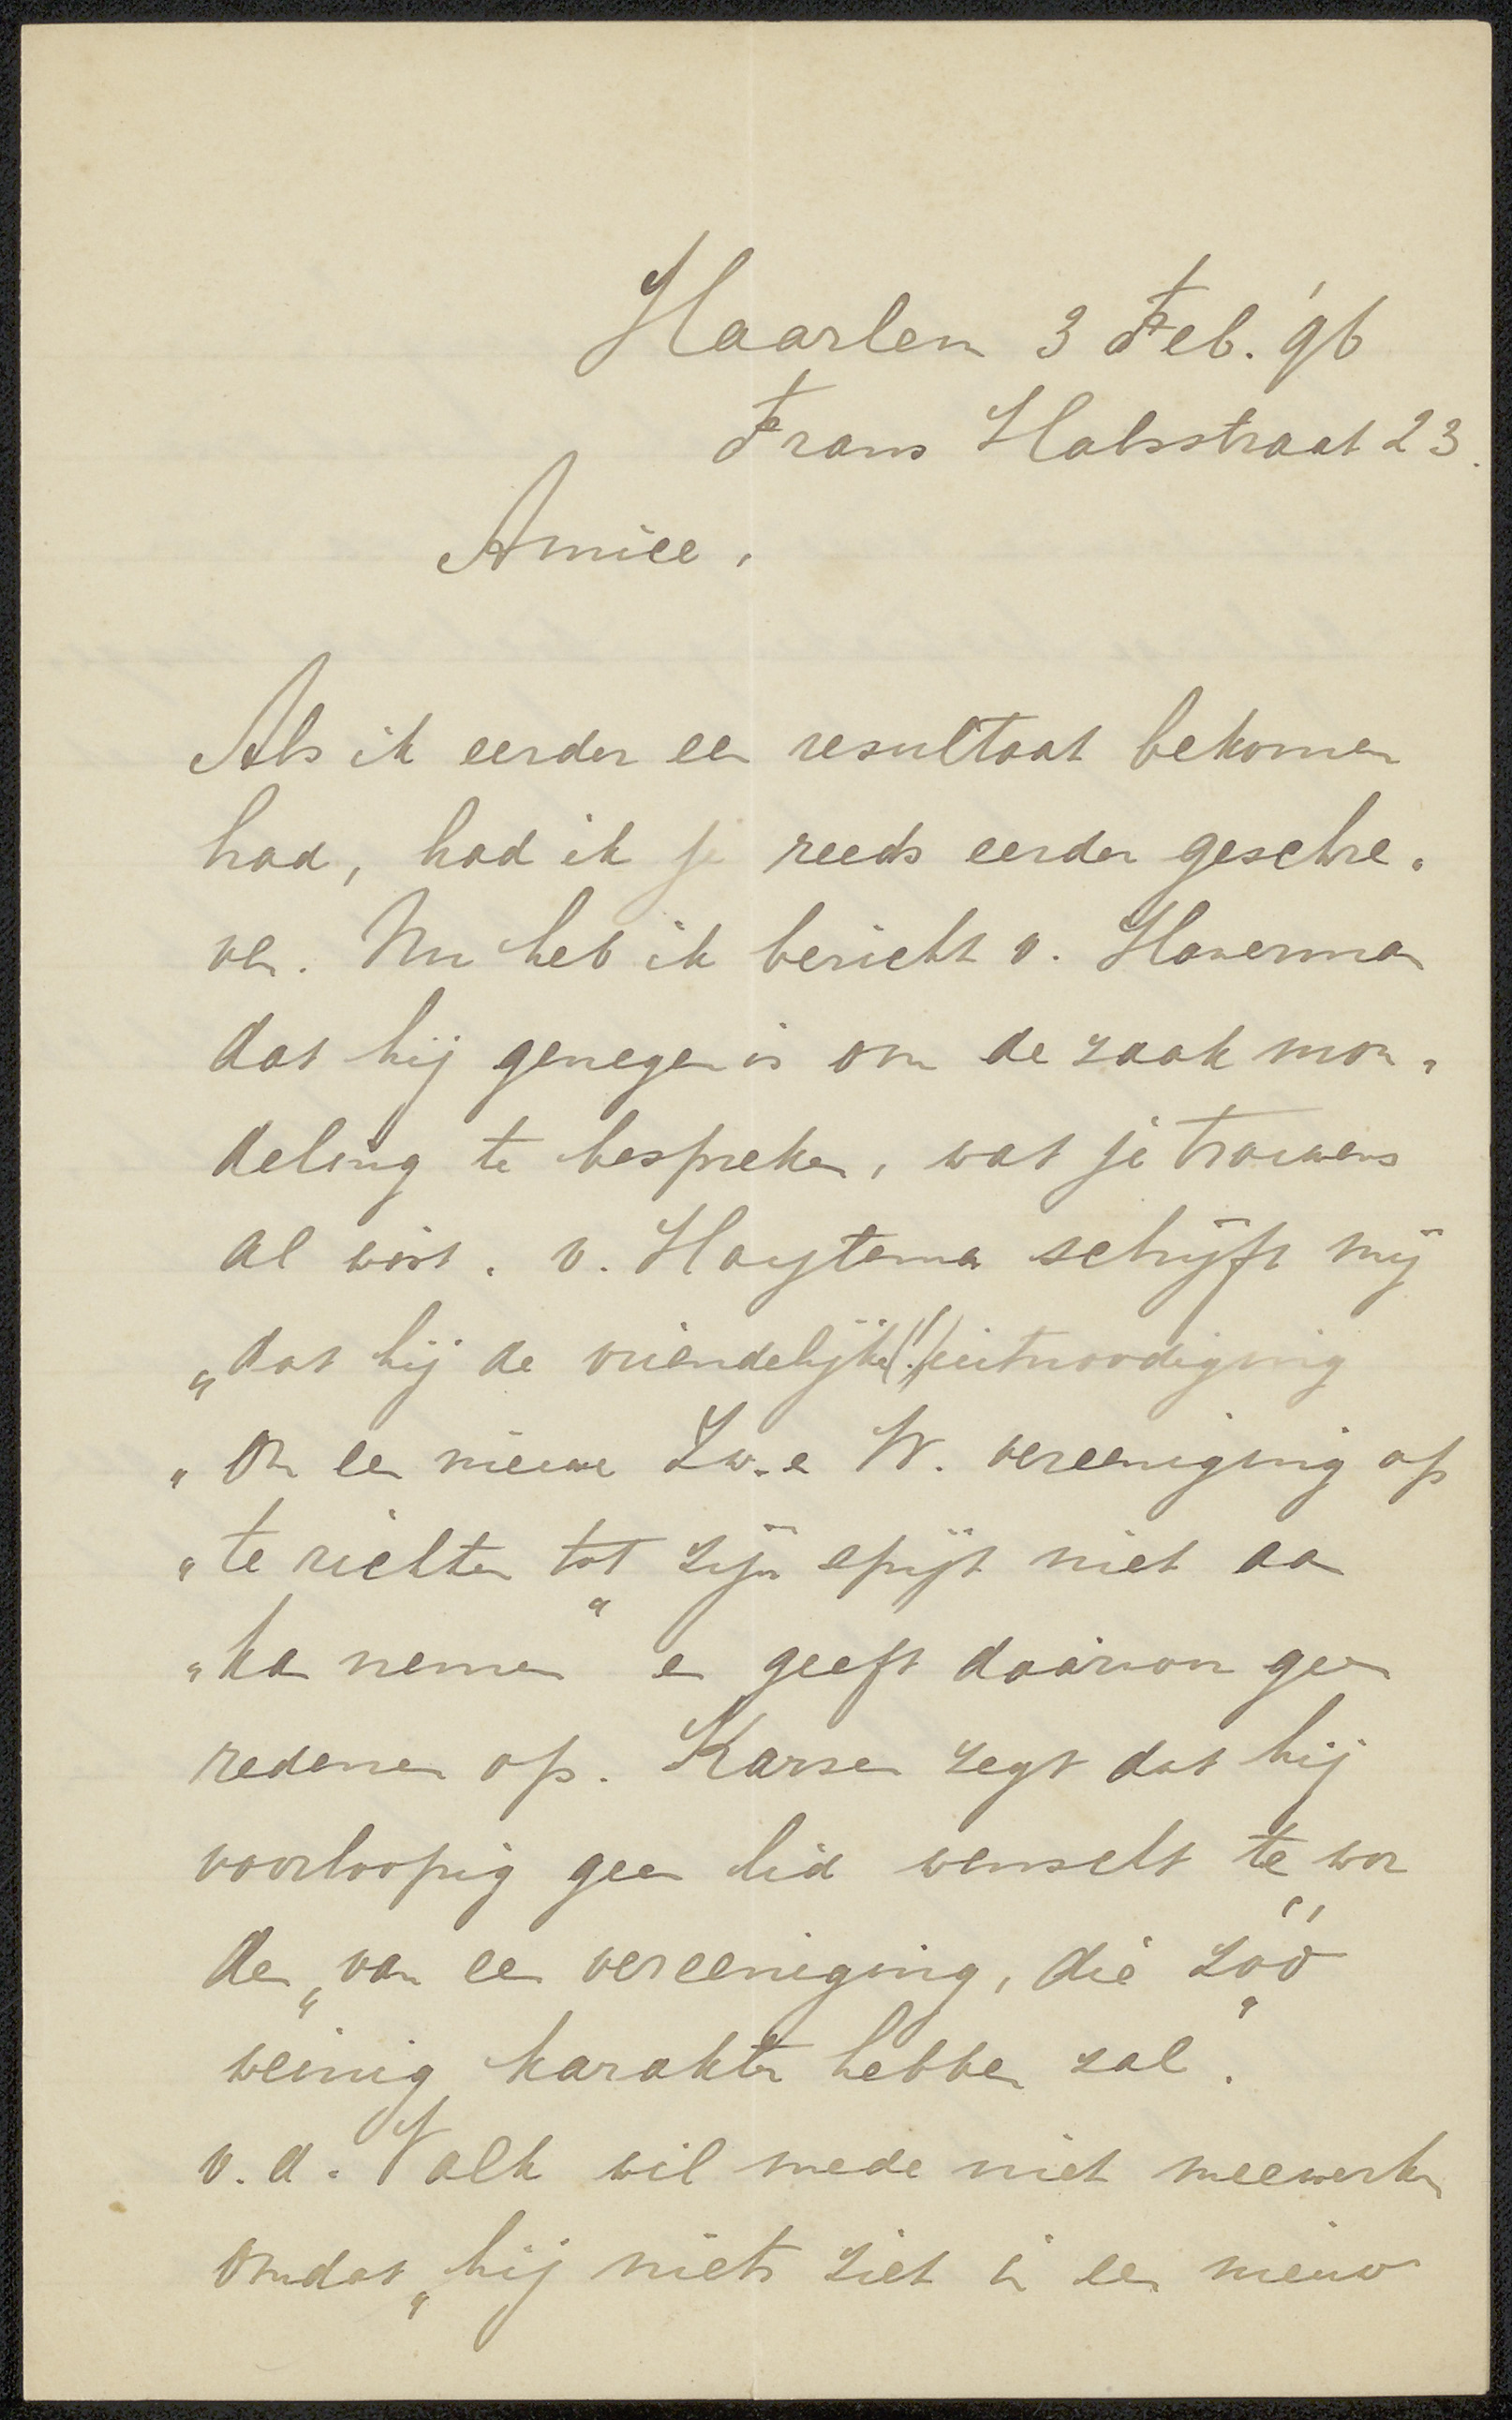 Haarlem 3 Feb. '96
Frans Halsstraat 23.
Amice,
Als ik eerder een resultaat bekomen
had, had ik je reeds eerder geschre-
ven. Nu heb ik bericht v. Haverman
dat hij genegen is om de zaak mon-
deling te bespreken, wat je trouwens
al wist. v. Hoytema schrijft mij
„dat hij de vriendelijke (!!) uitnoodiging
„om een nieuwe Zw. e W. vereeniging op
„te richten tot zijn spijt niet aan
„kan nemen" en geeft daarvan geen
redenen op. Karsen zegt dat hij
voorloopig geen lid wenscht te wor
den „van een vereeniging, die zóó
weinig karakter hebben zal".
v. d. Valk wil mede niet meewerken
omdat „hij niets ziet in een nieuw